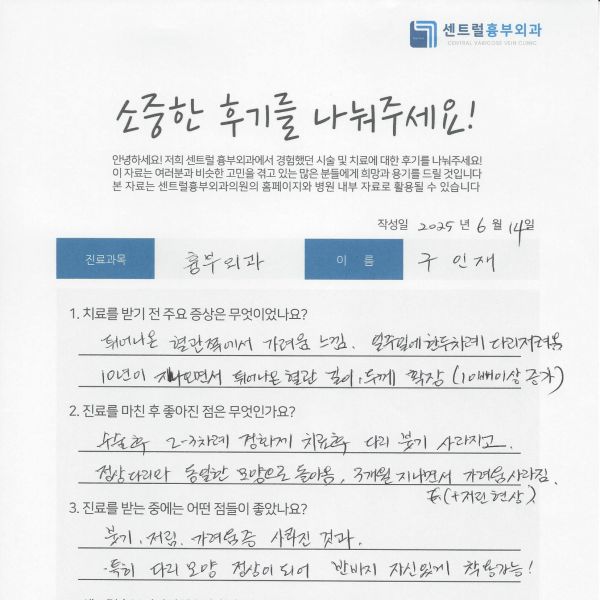 센트럴흉부외과
CENTRAL VARICOSE VEIN CLINIC
소중한 후기를 나눠주세요!
안녕하세요! 저희 센트럴 흉부외과에서 경험했던 시술 및 치료에 대한 후기를 나눠주세요!
이 자료는 여러분과 비슷한 고민을 겪고 있는 많은 분들에게 희망과 용기를 드릴 것입니다
본 자료는 센트럴흉부외과의원의 홈페이지와 병원 내부 자료로 활용될 수 있습니다
작성일 2025 년 6 월 14일
진료과목 흉부외과 이 름 구 인 재
1. 치료를 받기 전 주요 증상은 무엇이었나요?
튀어나온 혈관쪽에서 가려움 느낌. 일주일에 한두차례 다리저려움
10년이 지나오면서 튀어나온 혈관 길이, 두께 확장 (10배이상 증가)
2. 진료를 마친 후 좋아진 점은 무엇인가요?
수술후 2-3차례 경화제 치료후 다리 붓기 사라지고.
정상다리와 동일한 모양으로 돌아옴, 3개월 지나면서 가려움사라짐.
(+저린현상)
3. 진료를 받는 중에는 어떤 점들이 좋았나요?
붓기, 저림, 가려움증 사라진 것과.
특히 다리 모양 정상이 되어 반바지 자신있게 착용가능!